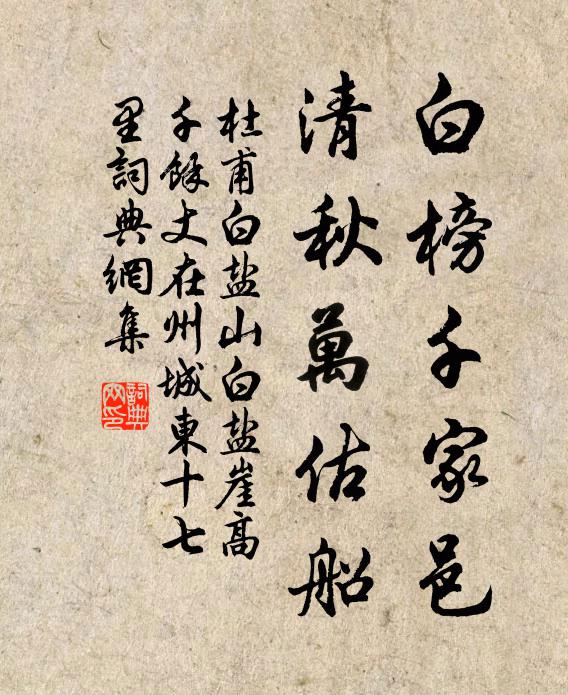 白榜千家邑
清秋萬估船
杜甫白盐山白盐崖高
千餘丈在州城東十七
里詞典網集
詞典
网印